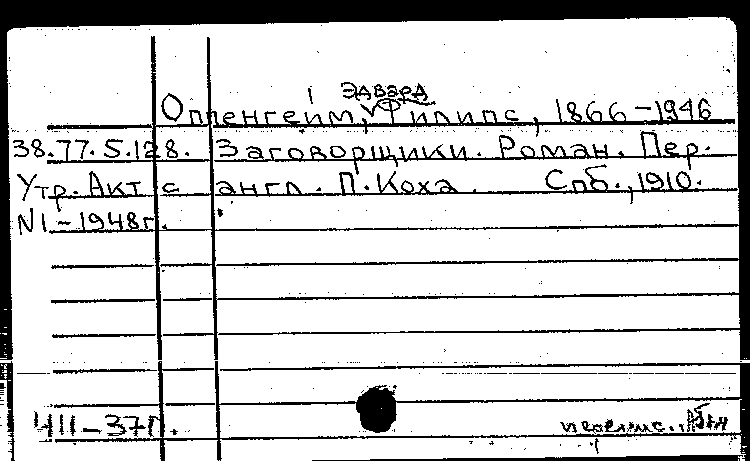 Эдвард
Оппенгейм, Филипс, 1866-1946
38.77.5.128. Заговорщики. Роман. Пер.
Утр. Акт с англ. П. Коха. Спб., 1910.
N1-1948г.
411-37г.